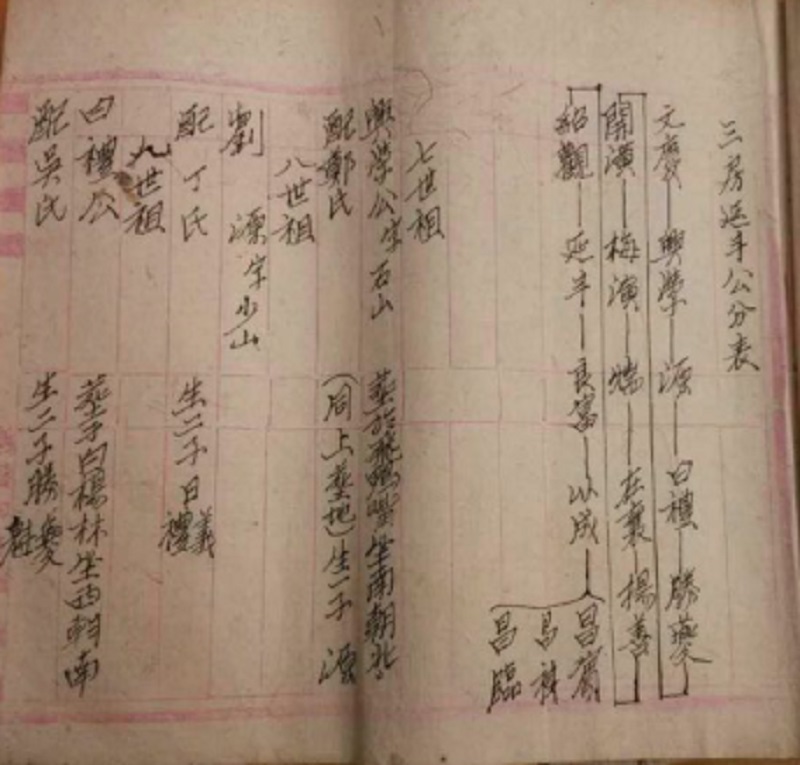 三房延年公分表
文慶—興學—源—曰禮—勝夔
開漢—梅演—端—在襄—楊善
紹觀—延年—良富—以成—昌賓
昌林
昌臨
七世祖
興學公字石山 葬於飛鵝嘴坐南朝北
配鄭氏 (同上葬地)生一子 源
八世祖
劉 源字少山
配丁氏 生二子曰義 禮
九世祖
曰禮公 葬于白楊林坐西朝南
配吳氏 生二子勝夔